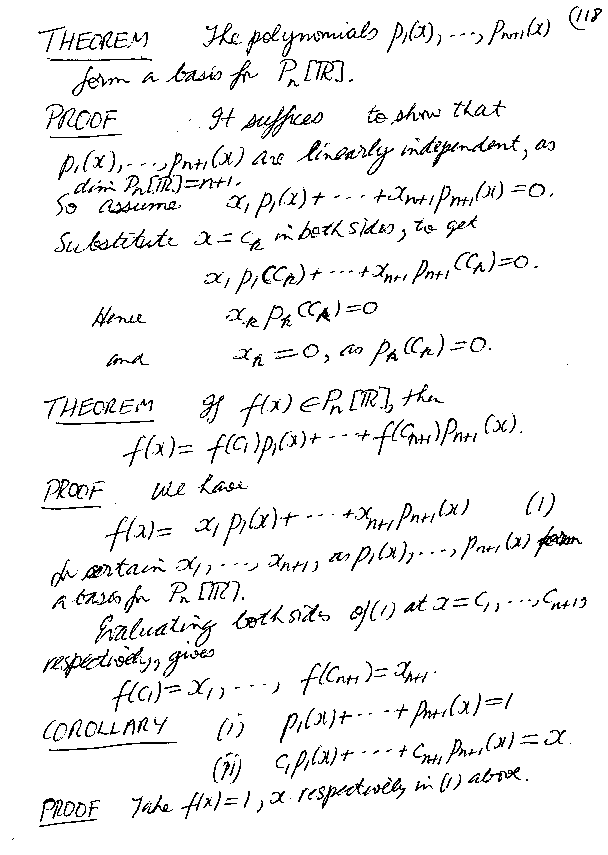 THEOREM The polynomials p₁(x), ..., pₙ₊₁(x) (118
form a basis for Pₙ[ℝ].
PROOF It suffices to show that
p₁(x), ..., pₙ₊₁(x) are linearly independent, as
dim Pₙ[ℝ]=n+1.
So assume x₁p₁(x)+ ... +xₙ₊₁pₙ₊₁(x)=0.
Substitute x=c_k in both sides, to get
x₁p₁(c_k)+ ... +xₙ₊₁pₙ₊₁(c_k)=0.
Hence x_k p_k(c_k)=0
and x_k=0, as p_k(c_k)=0.
THEOREM If f(x)∈Pₙ[ℝ], then
f(x)= f(c₁)p₁(x)+ ... +f(cₙ₊₁)pₙ₊₁(x).
PROOF We have
f(x)= x₁p₁(x)+ ... +xₙ₊₁pₙ₊₁(x) (1)
for certain x₁, ..., xₙ₊₁, as p₁(x), ..., pₙ₊₁(x) form
a basis for Pₙ[ℝ].
Evaluating both sides of (1) at x=c₁, ..., cₙ₊₁,
respectively, gives
f(c₁)=x₁, ..., f(cₙ₊₁)=xₙ₊₁.
COROLLARY (i) p₁(x)+ ... +pₙ₊₁(x)=1
(ii) c₁p₁(x)+ ... +cₙ₊₁pₙ₊₁(x)=x.
PROOF Take f(x)=1, x respectively in (1) above.